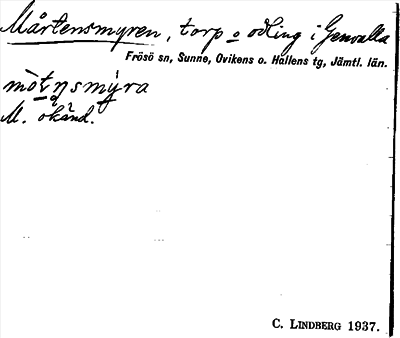 Mårtensmyren, torp o odling i Genvalla
Frösö sn, Sunne, Ovikens o. Hallens tg, Jämtl. län.
mòtn̥smỳra
M. okänd.
C. LINDBERG 1937.